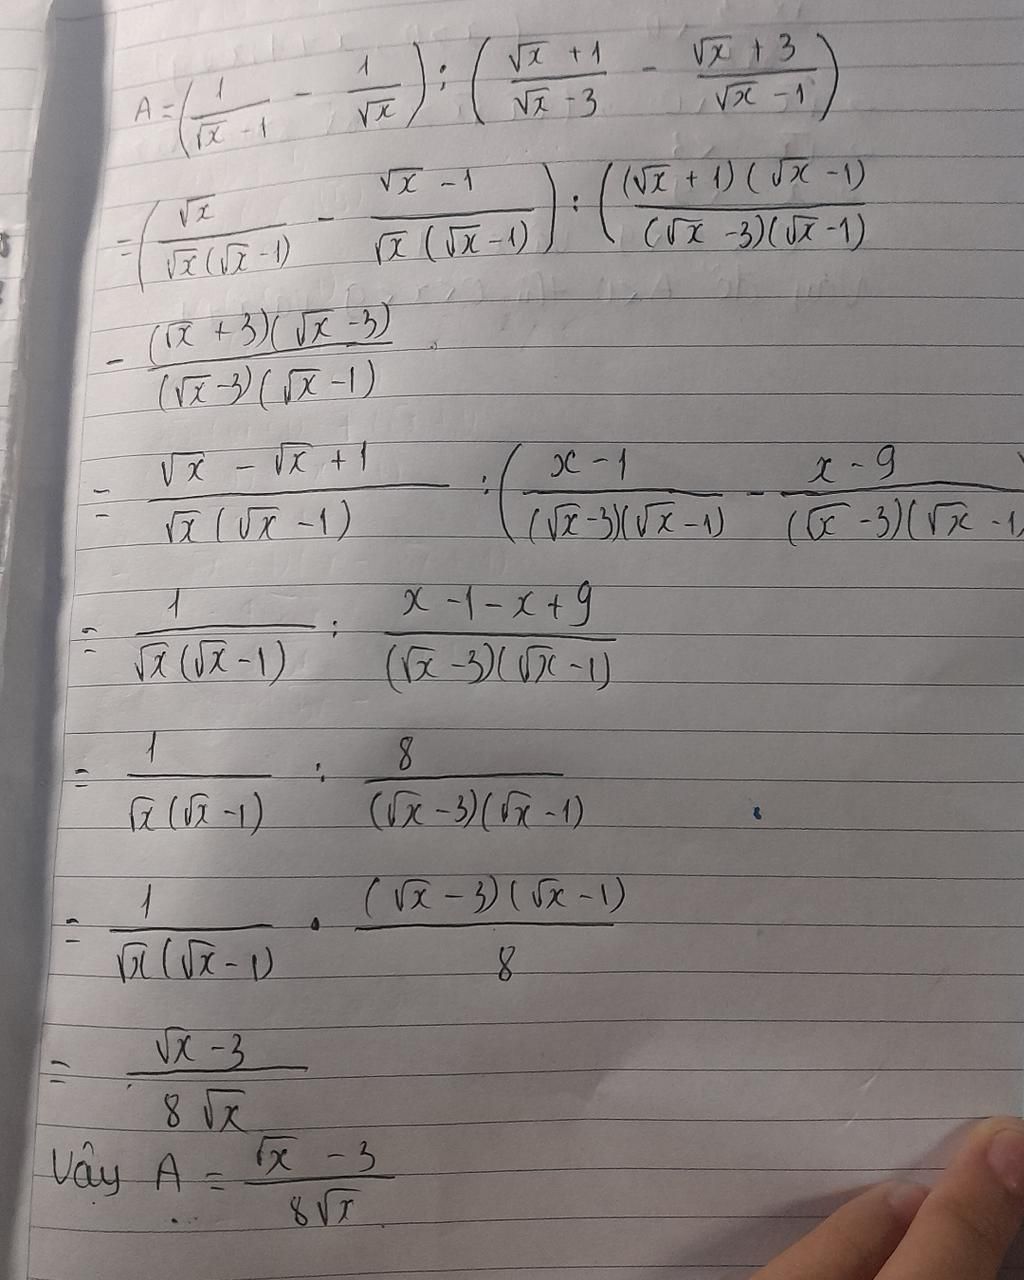 A = (1/(√x - 1) - 1/√x) : ((√x + 1)/(√x - 3) - (√x + 3)/(√x - 1))
= (√x/(√x(√x - 1)) - (√x - 1)/(√x(√x - 1))) : (((√x + 1)(√x - 1))/((√x - 3)(√x - 1))
- ((√x + 3)(√x - 3))/((√x - 3)(√x - 1))
= (√x - √x + 1)/(√x(√x - 1)) : ((x - 1)/((√x - 3)(√x - 1)) - (x - 9)/((√x - 3)(√x - 1)
= 1/(√x(√x - 1)) : (x - 1 - x + 9)/((√x - 3)(√x - 1))
= 1/(√x(√x - 1)) : 8/((√x - 3)(√x - 1))
= 1/(√x(√x - 1)) . ((√x - 3)(√x - 1))/8
= (√x - 3)/(8√x)
Vậy A = (√x - 3)/(8√x)